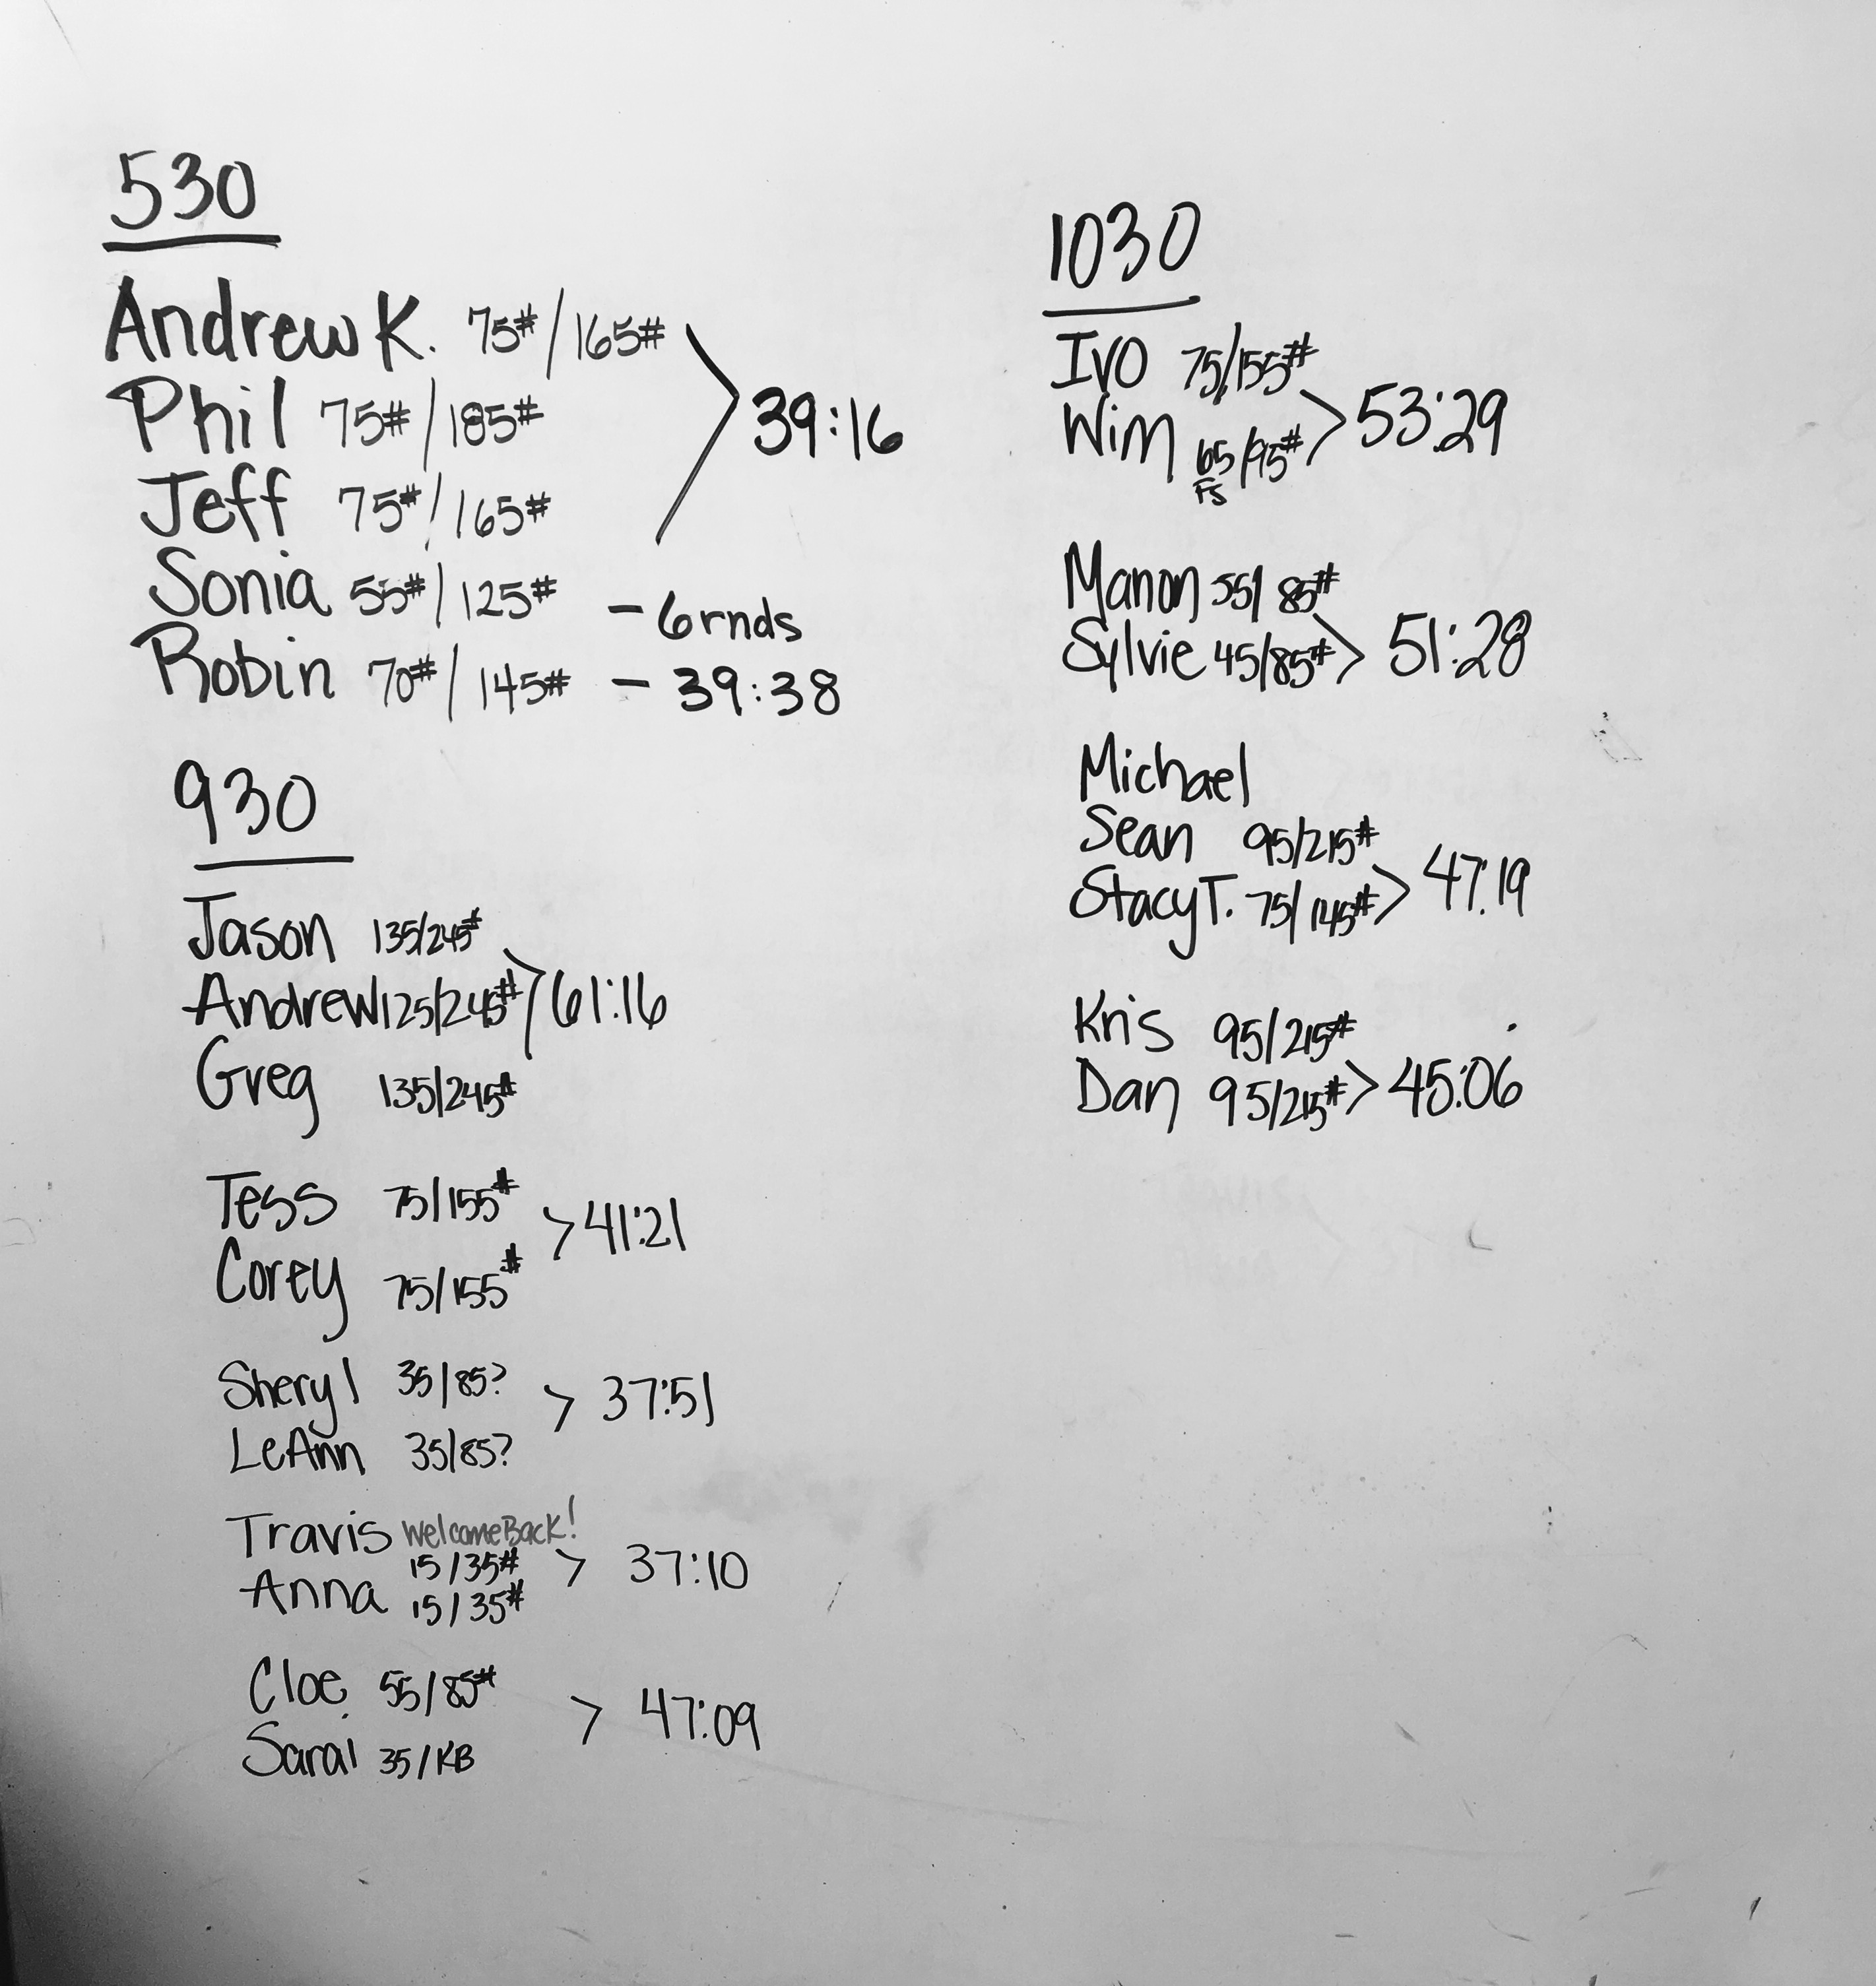 530
Andrew K. 75#/165#
Phil 75#/185#
Jeff 75#/165#
> 39:16
Sonia 55#/125# - 6 rnds
Robin 70#/145# - 39:38
930
Jason 135/245#
Andrew 125/245# > 61:16
Greg 135/245#
Tess 75/155#
> 41:21
Corey 75/155#
Sheryl 35/85?
> 37:51
LeAnn 35/85?
Travis Welcome Back!
15/35# > 37:10
Anna 15/35#
Cloe 55/85#
> 47:09
Sarai 35/KB
1030
Ivo 75/155#
> 53:29
Wim 65/95#
FS
Manon 55/85#
Sylvie 45/85# > 51:28
Michael
Sean 95/215#
Stacy T. 75/145# > 47:19
Kris 95/215#
Dan 95/215# > 45:06